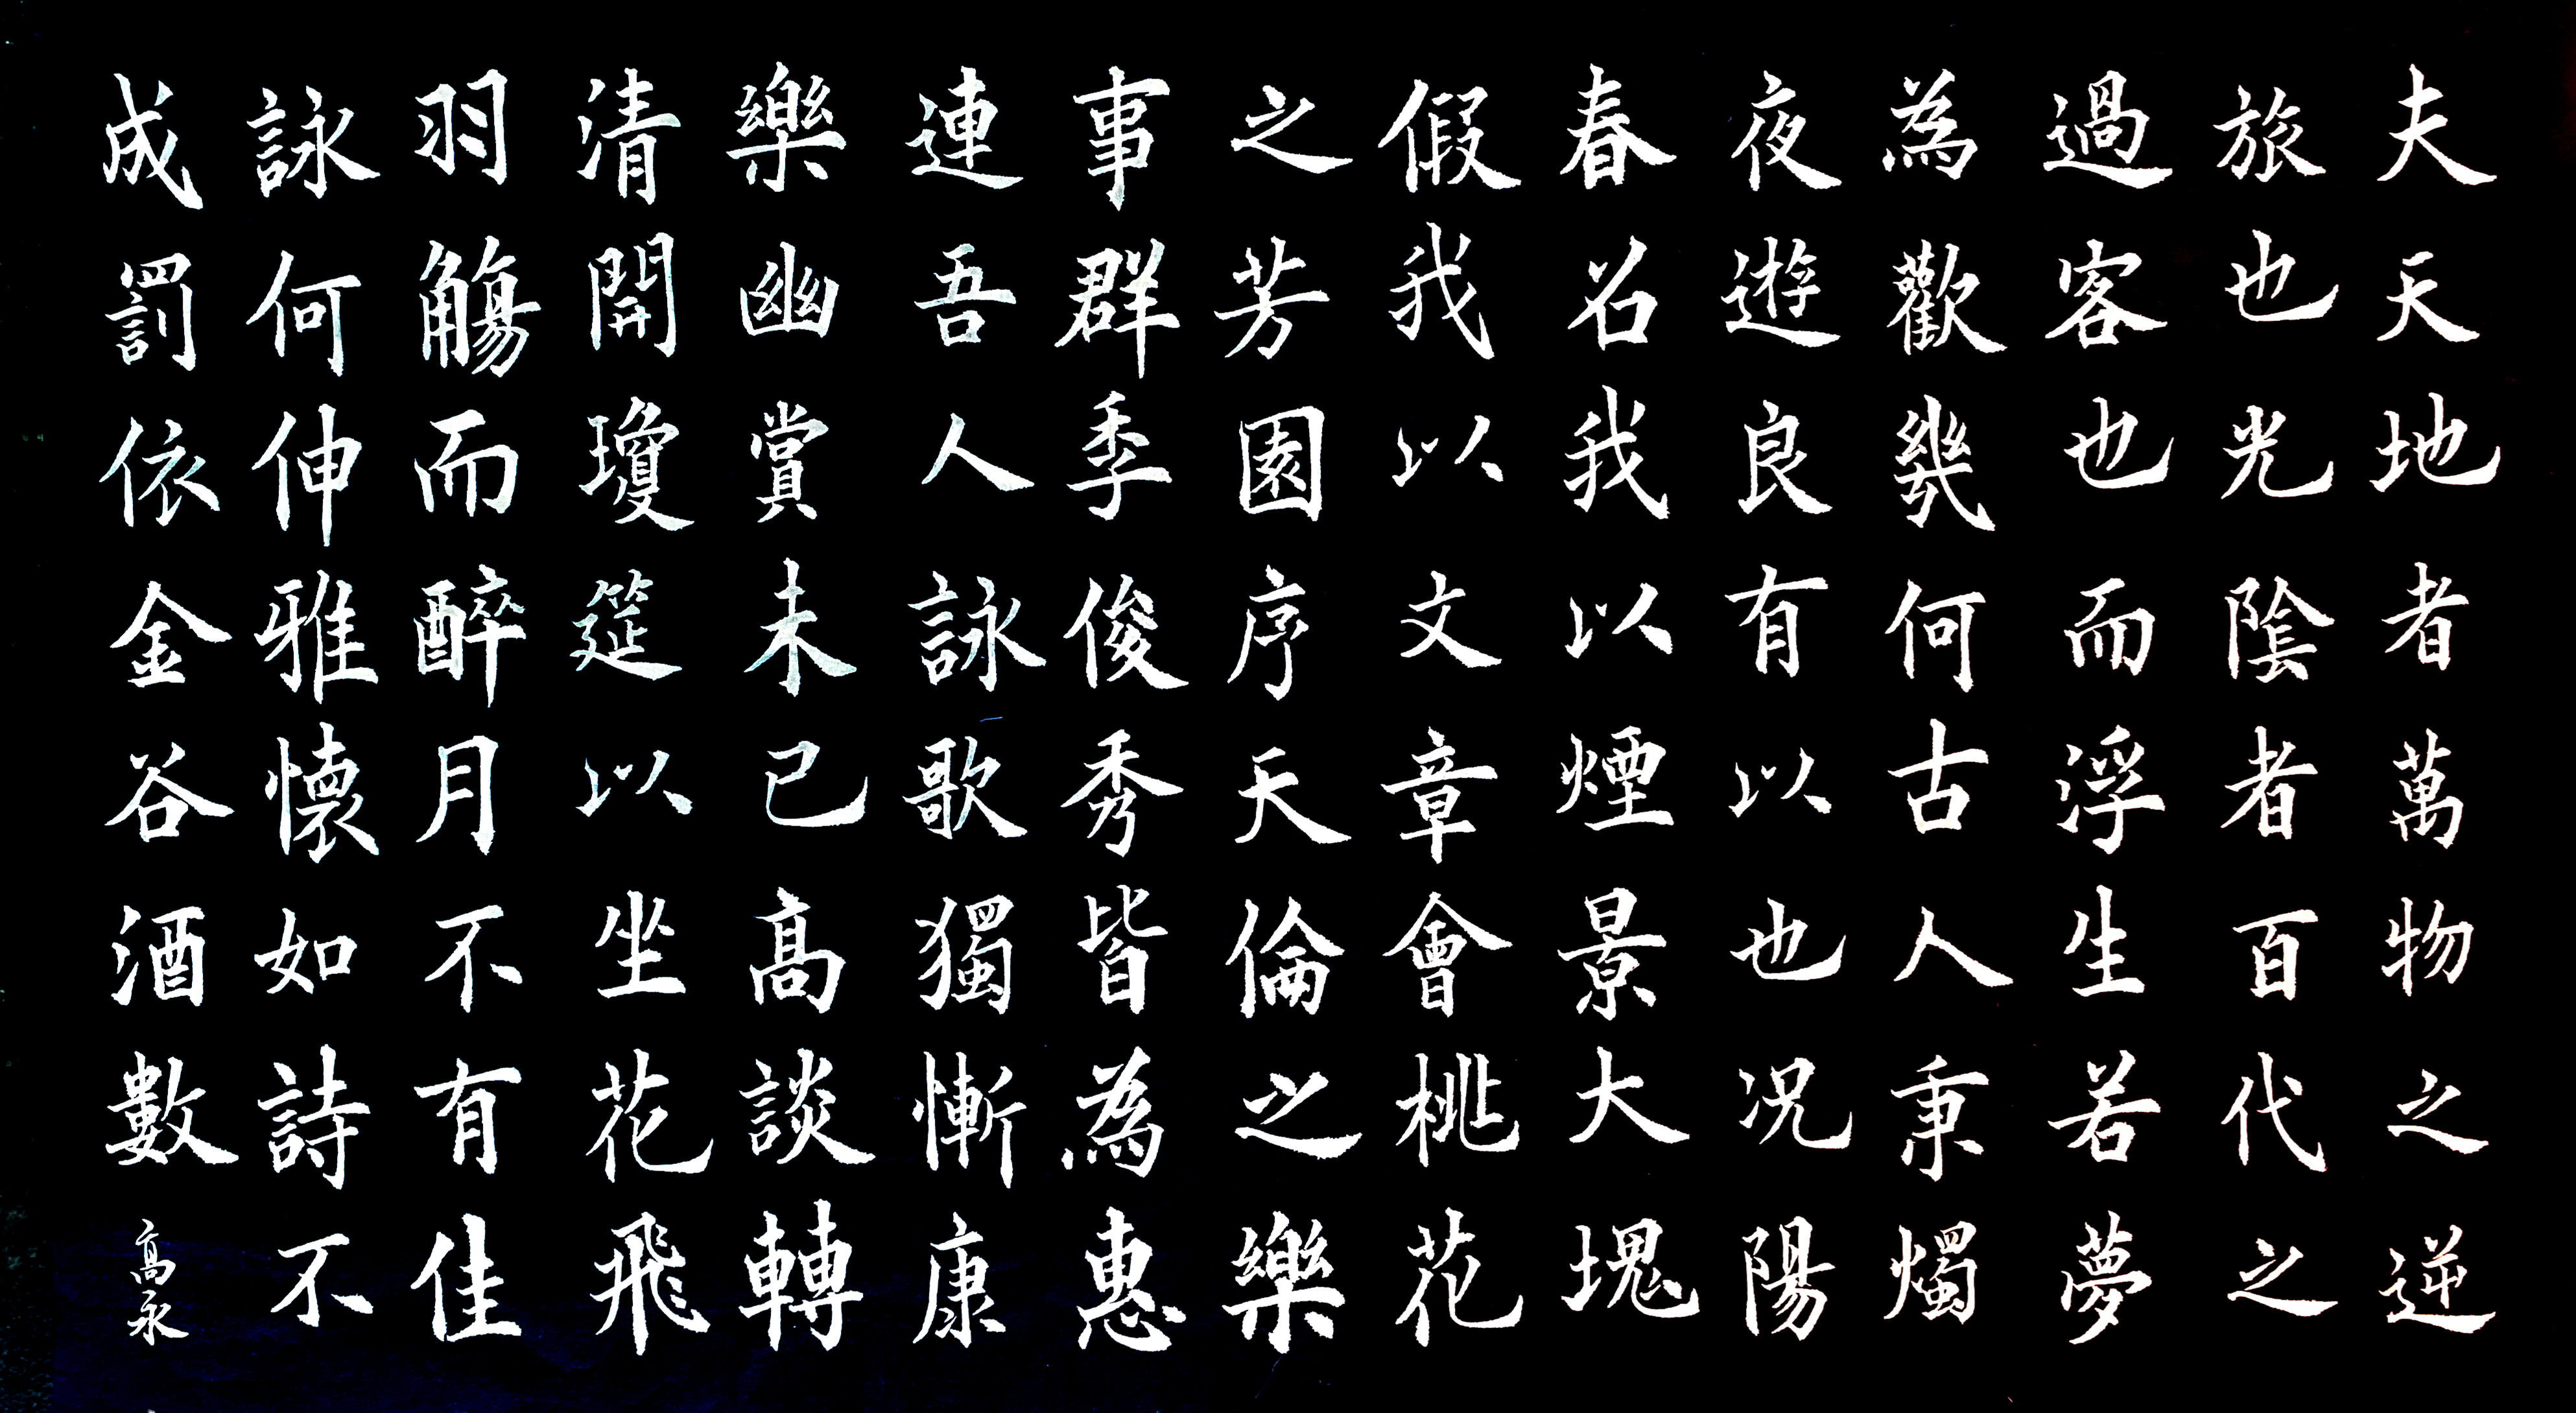 夫天地者萬物之逆
旅也光陰者百代之
過客也而浮生若夢
為歡幾何古人秉燭
夜遊良有以也况陽
春召我以煙景大塊
假我以文章會桃花
之芳園序天倫之樂
事群季俊秀皆為惠
連吾人詠歌獨慚康
樂幽賞未已高談轉
清開瓊筵以坐花飛
羽觴而醉月不有佳
詠何伸雅懷如詩不
成罰依金谷酒數 高永